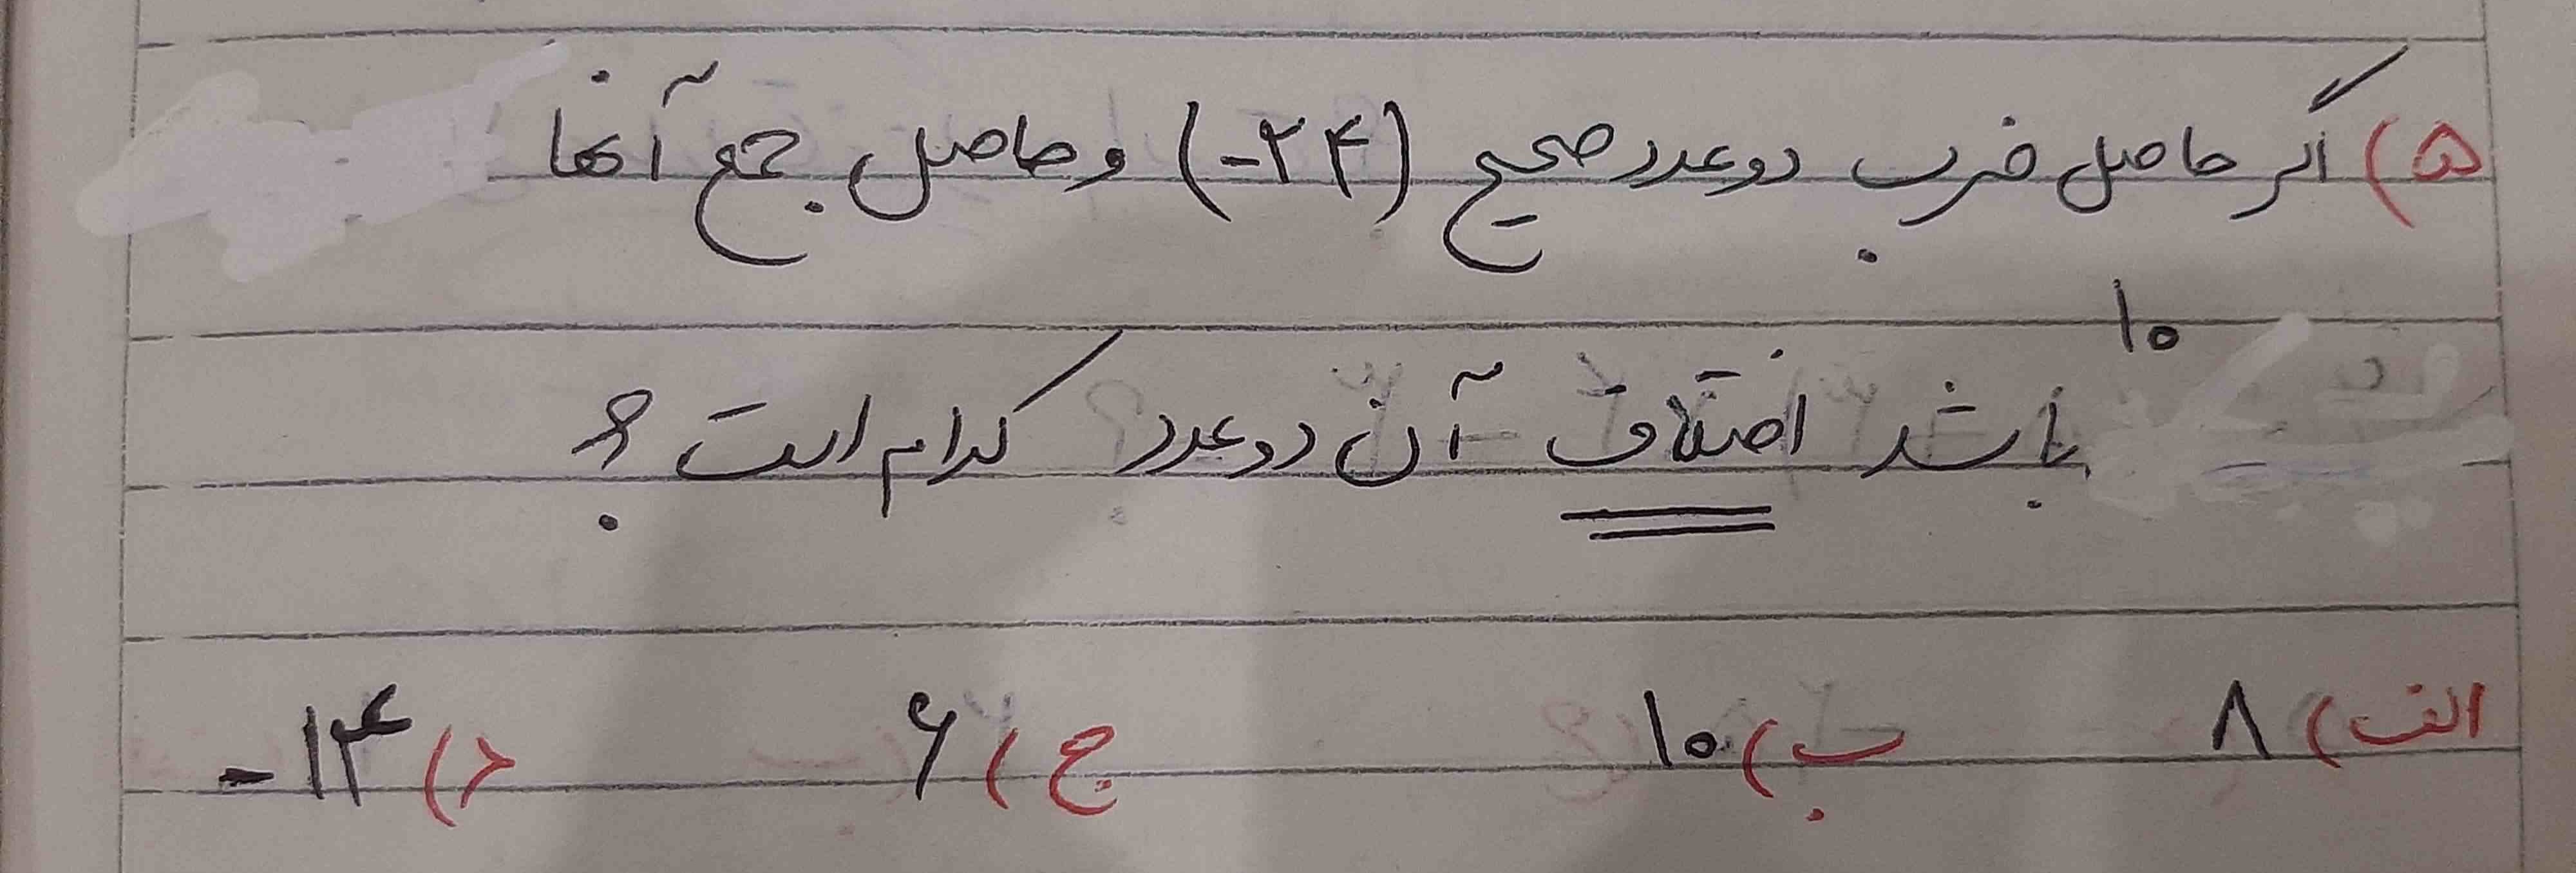 ۵) اگر حاصل ضرب دو عدد صحیح (۲۴-) و حاصل جمع آنها
۱۰
باشد اختلاف آن دو عدد کدام است؟
الف) ۸ ب) ۱۰ ج) ۶ د) ۱۴-